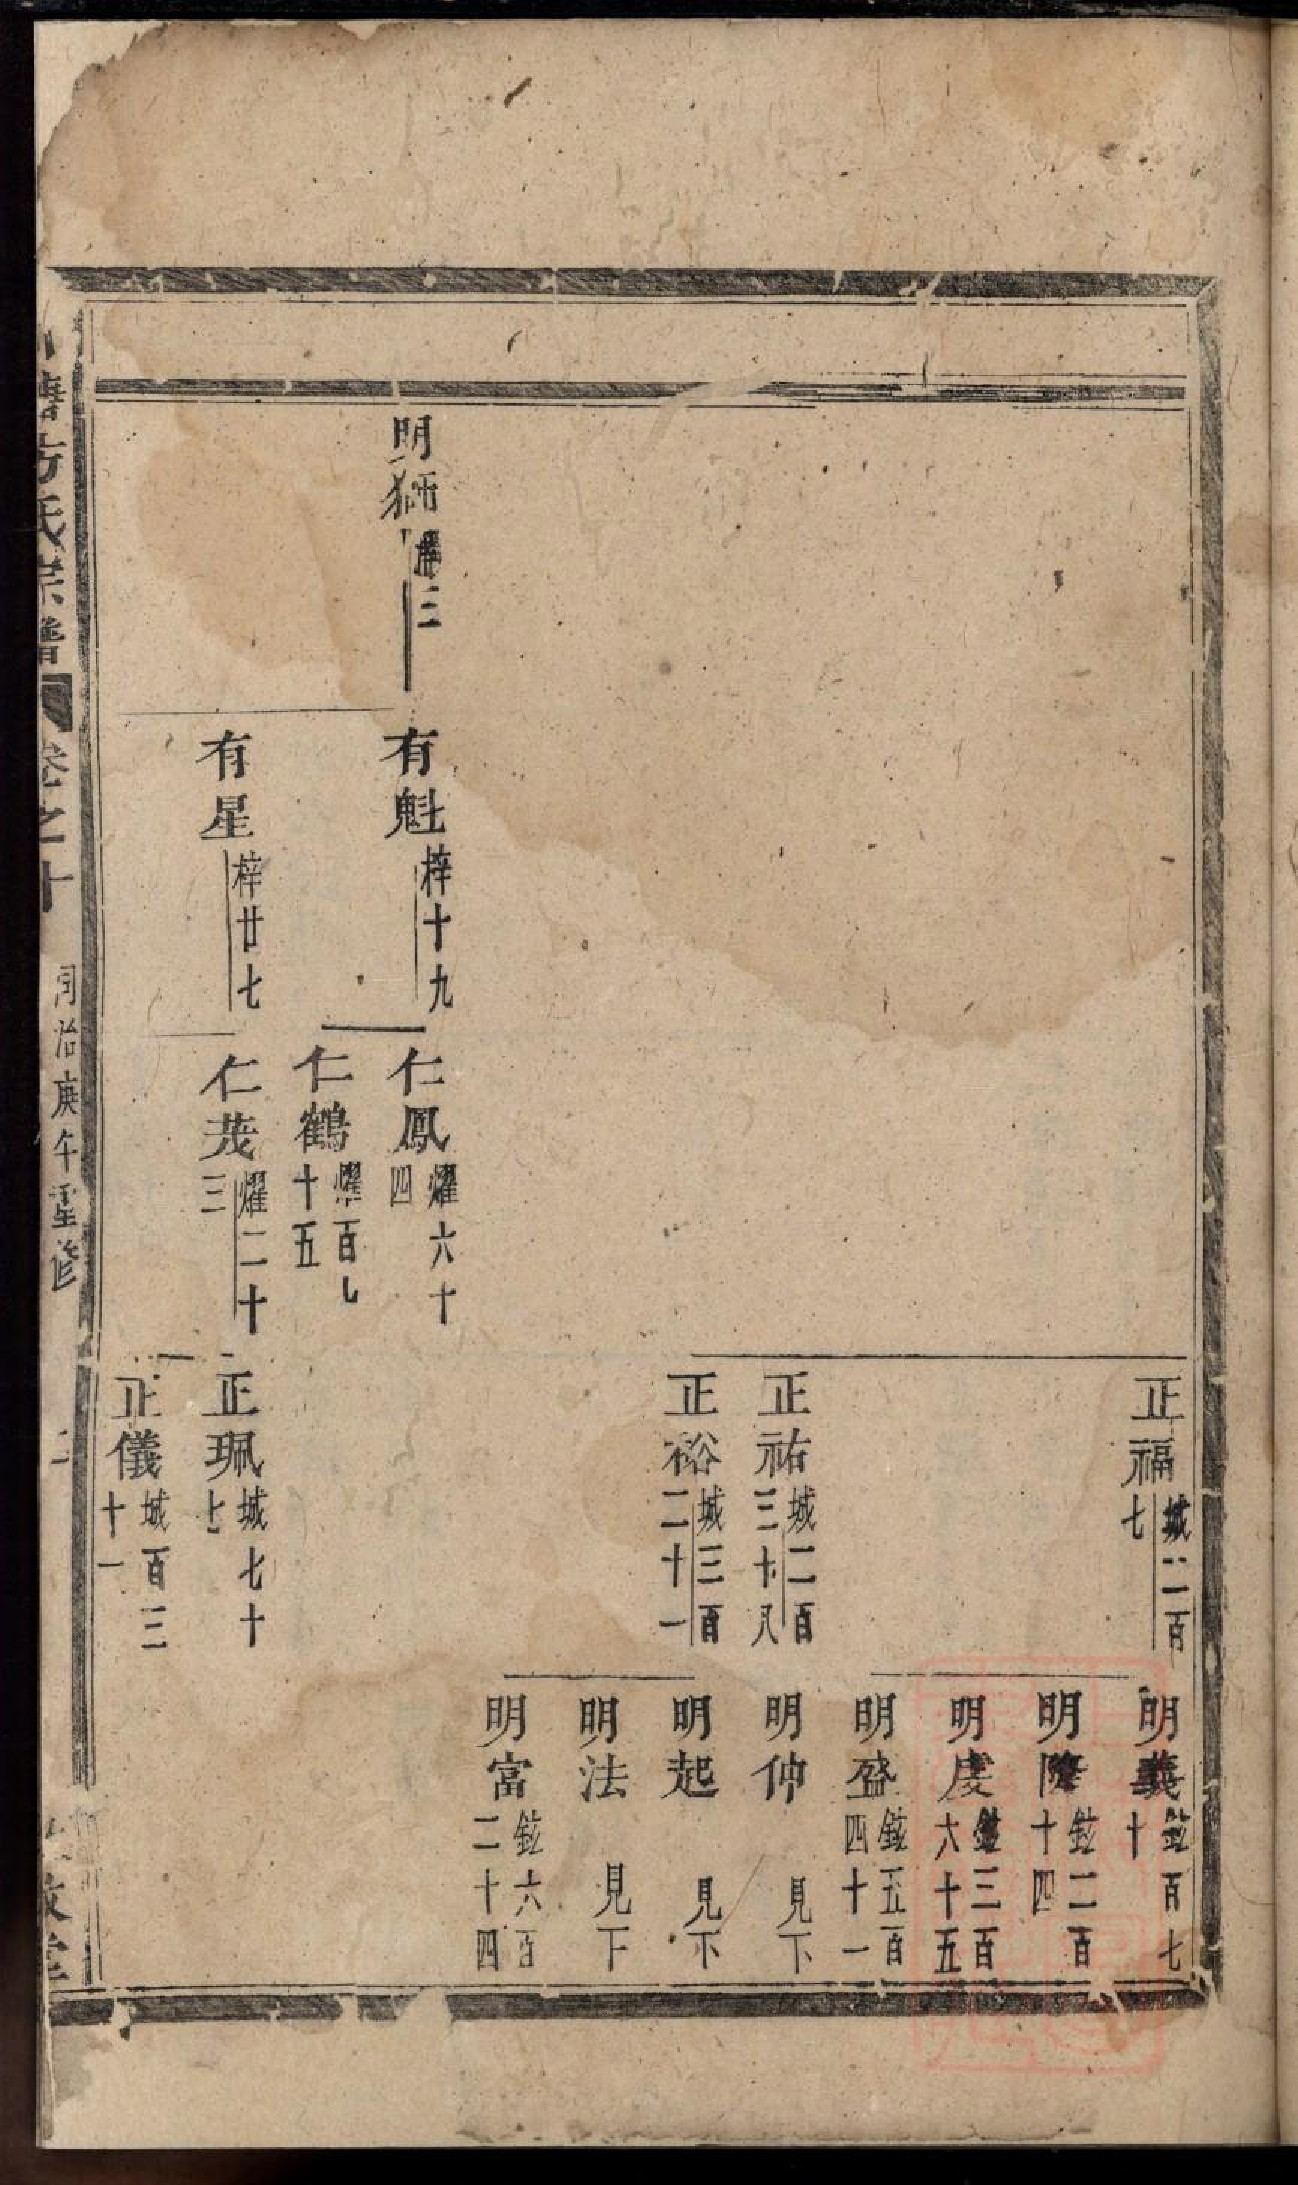 正福 城二百七
明義 鉉百七十
明隆 鉉二百十四
明虔 鉉三百六十五
明盛 鉉五百四十一
正祐 城二百三十八
明仲 見下
正裕 城三百二十一
明起 見下
明法 見下
明富 鉉六百二十四
明 三
有魁 梓十九
仁鳳 燿六十四
仁鶴 燿百十五
有星 梓廿七
仁茂 燿二十三
正珮 城七十七
正儀 城百三十一
方氏宗譜 卷之十 同治庚午重修 二 敬堂